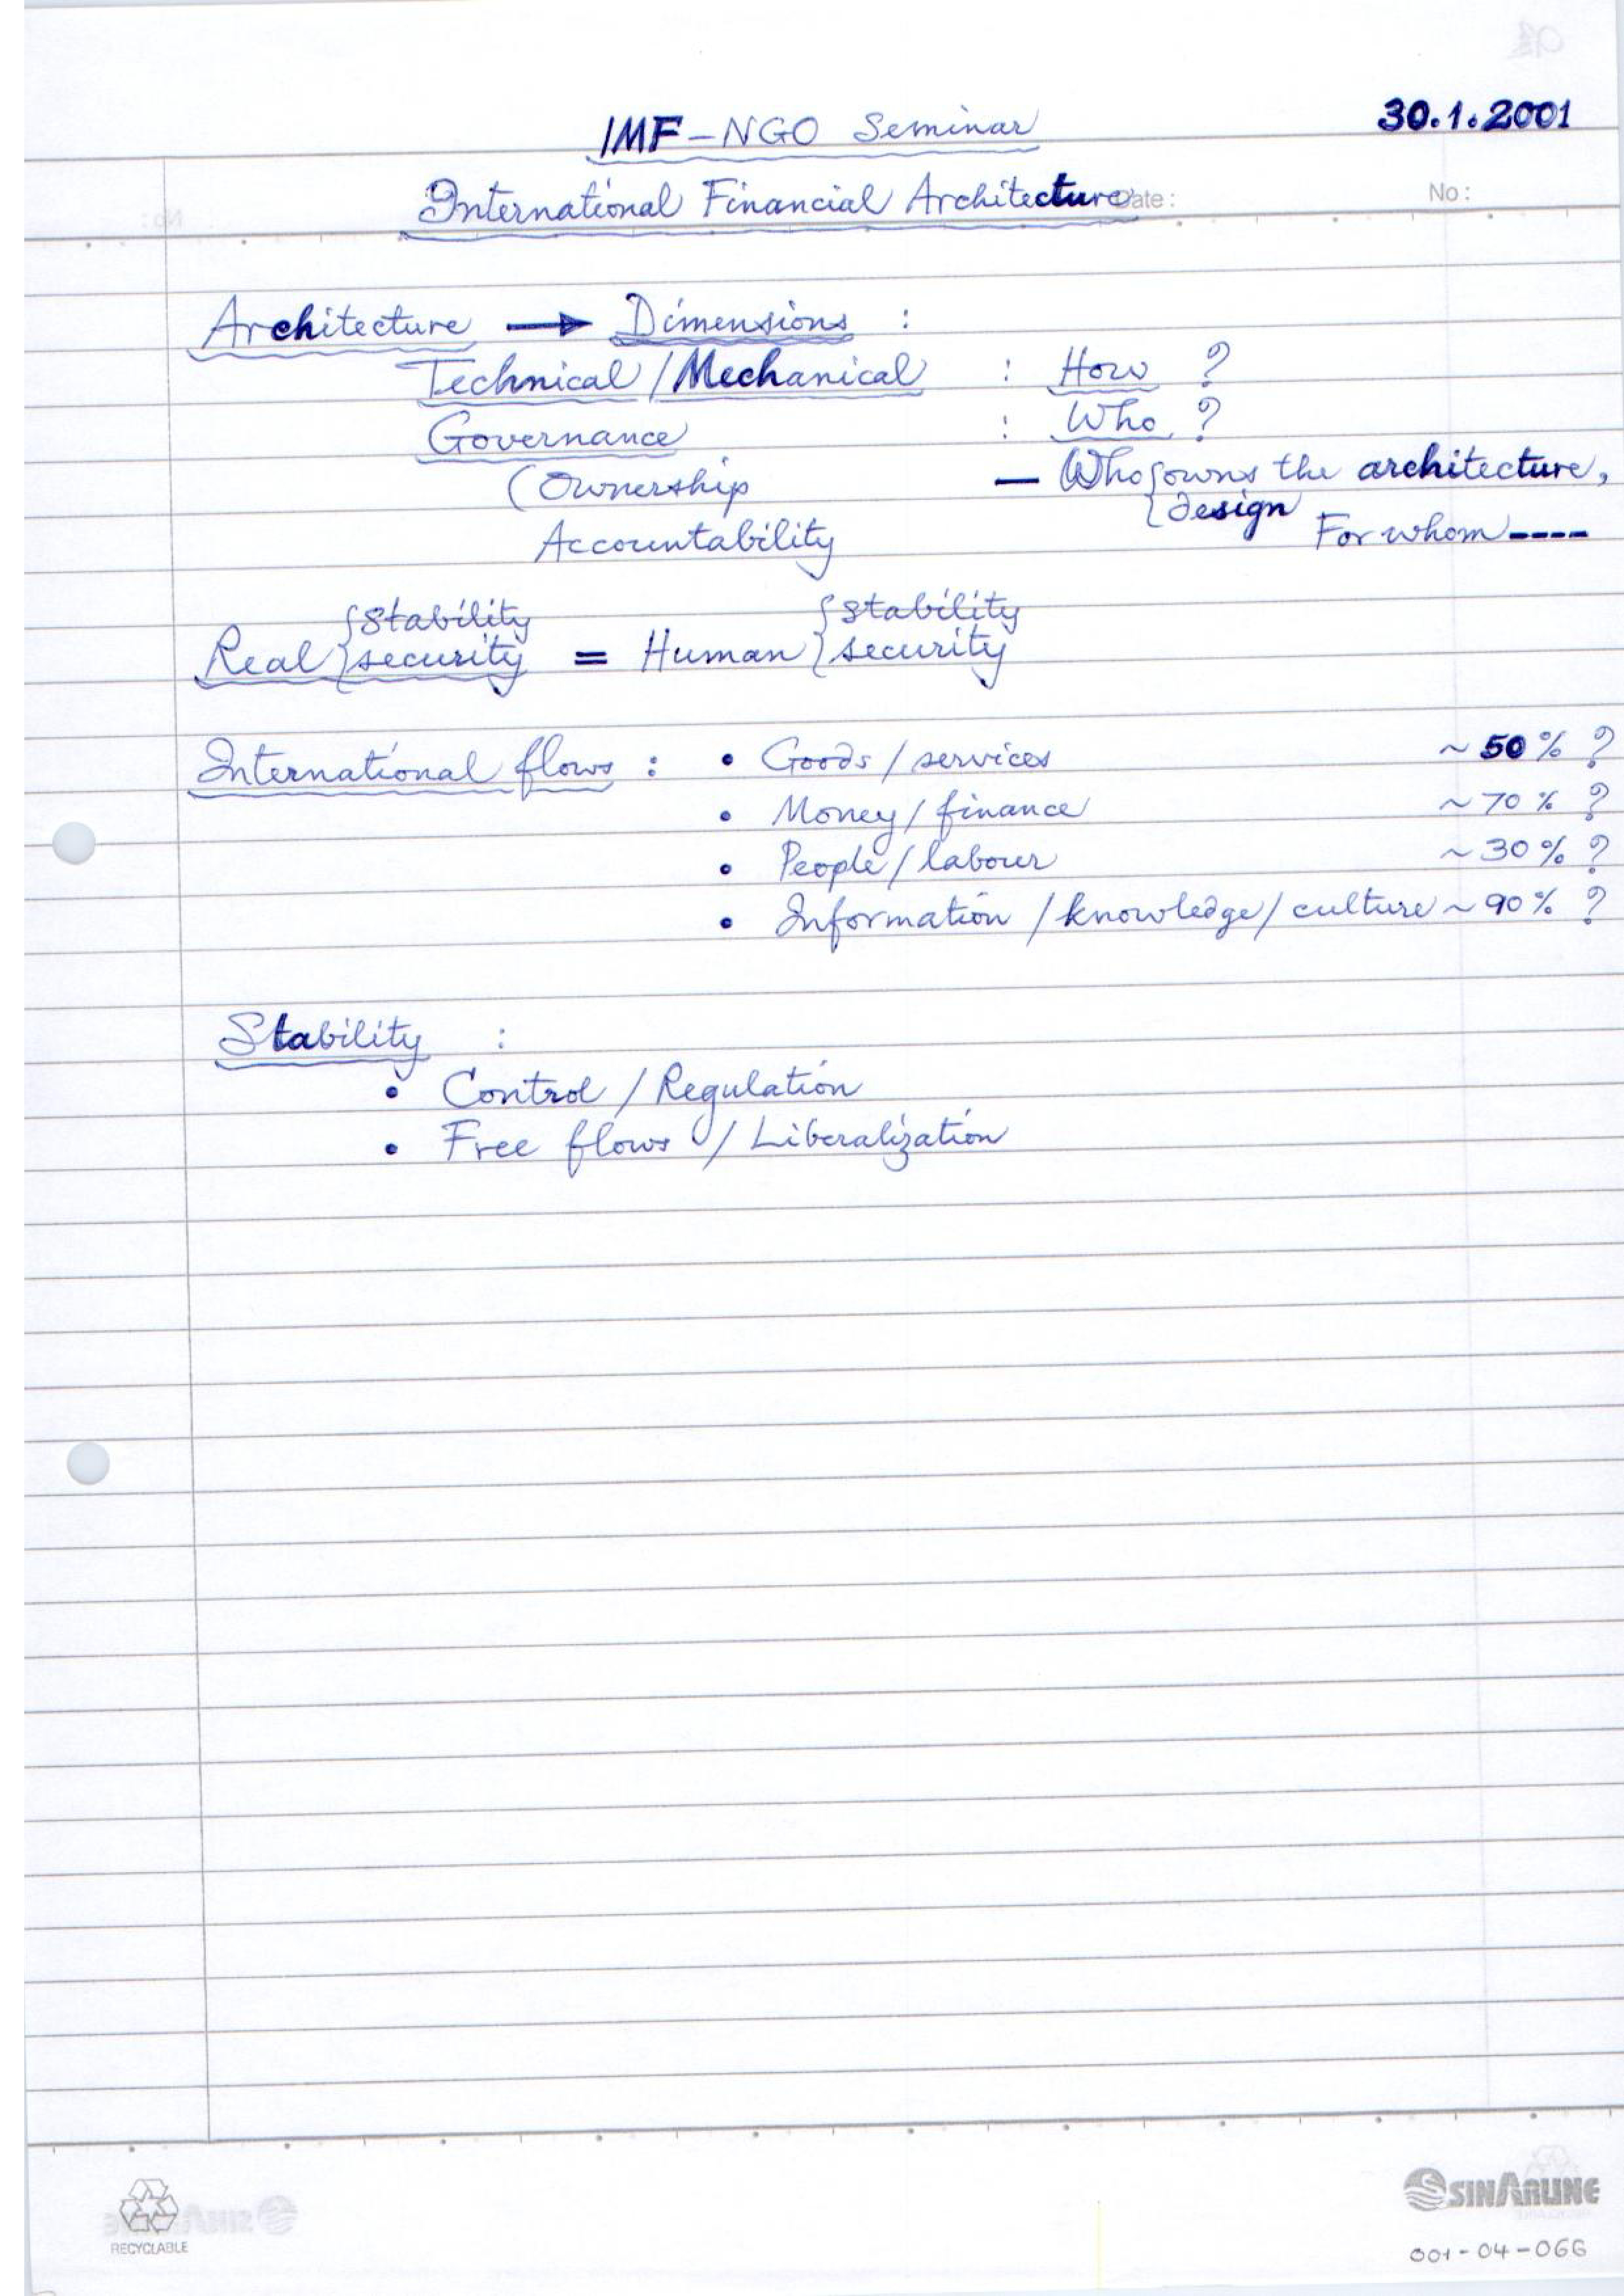 30.1.2001
IMF - NGO Seminar
International Financial Architecture
Date :
No :
Architecture → Dimensions :
Technical / Mechanical : How ?
Governance : Who ?
(Ownership — Who { owns the architecture,
{ design
Accountability For whom ----
{ stability { stability
Real { security = Human { security
International flows : • Goods / services ~ 50 % ?
• Money / finance ~ 70 % ?
• People / labour ~ 30 % ?
• Information / knowledge / culture ~ 90 % ?
Stability :
• Control / Regulation
• Free flows / Liberalization
RECYCLABLE
SINARLINE
001-04-066